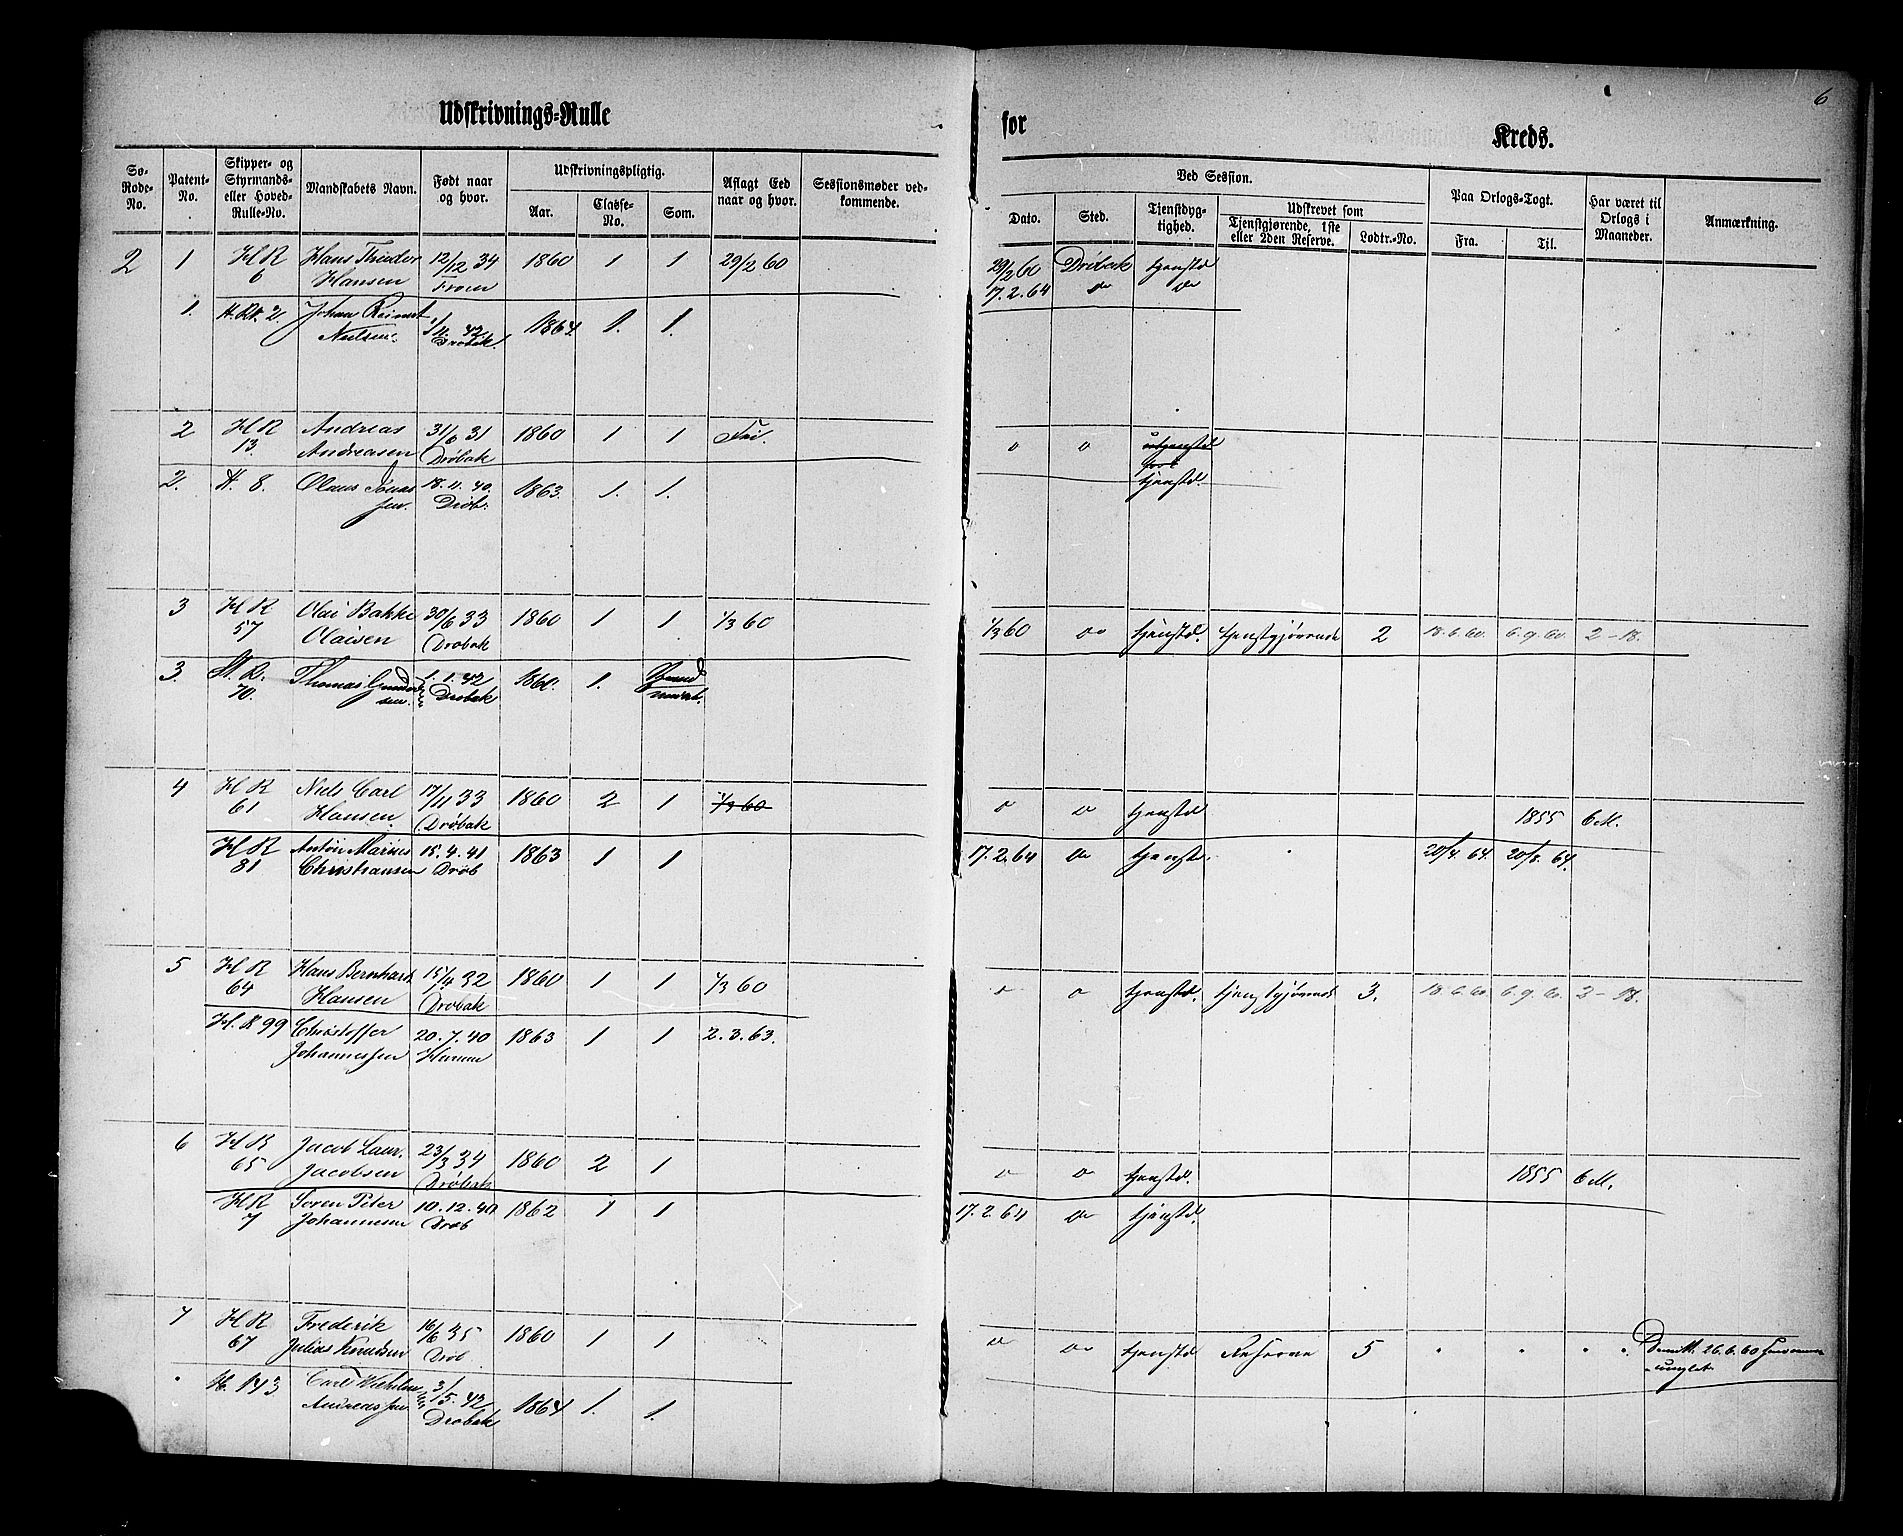 6
Udskrivnings-Rulle for Kreds.
Sø-Rode-No. Patent-No. Skipper- og Styrmands- eller Hoved-Rulle-No. Mandskabets Navn. Født naar og hvor. Udskrivningspligtig. Aar. Classe-No. Som. Aflagt Eed naar og hvor. Sessionsmøder vedkommende.
Ved Session. Dato. Sted. Tjenstdygtighed. Udskrevet som Tjenstgjørende, 1ste eller 2den Reserve. Lodtr.-No. Paa Orlogs-Togt. Fra. Til. Har været til Orlogs i Maaneder. Anmærkning.
2 1 H R Hans 12/12 34 1860 1 1 29/2 60 29/2 60 Drøbak tjenstd
6 Hansen 17.2.64 do do
1. H.R. 2. Johan Reinert 1/11. 42 1864 1. 1.
Nielsen. Drøbak.
2 H R Andreas 31/6 31 1860 1 1 o o
13. Andreasen Drøbak
2. H. 8. Olaus Jonas 18.11.40. 1863. 1. 1. tjenstd.
sen. Drøb.
3 H R Olai Bakke 30/6 33 1860 1 1 1/3 60 1/3 60 do tjenstd. tjenstgjørende 2 18.6.60. 6.9.60. 2-18.
57 Olaisen Drøbak
3. H. R. Thomas Gunder 1.1.42 1860. 1.
70. sen. Drøbak
4 H R Niels Carl 17/11 33 1860 2 1 1/3 60 o o tjenstd 1855 6 M.
61 Hansen. Drøbak
H R Anton Marius 15.4.41 1863 1 1 17.2.64 do tjenstd. 20/4. 64. 20/8. 64.
81 Christiansen Drøb
5 H R Hans Bernhard 15/4 32 1860 1 1 1/3 60 o o tjenstd. tjenstgjørende 3. 18.6.60. 6.9.60. 2-18.
64 Hansen Drøbak
H. R 99 Christoffer 20.7.40 1863 1 1 2.3.63.
Johannessen Hurum
6 H R Jacob Laur. 23/3 34 1860 2 1 o o tjenstd. 1855 6 M.
65 Jacobsen Drøbak
H R Soren Peter 10.12.40 1862 1 1 17.2.64 do tjenstd.
7 Johannesen Drøb
7 H R Frederik 16/6 35 1860 1 1 o do tjenstd Reserve 5 " " " " Demitt. 26.6.60
67 Julius Knudsen Drøb
H. 143 Carl Wilhelm 3/5. 42 1864 1. 1.
Andreassen Drøbak